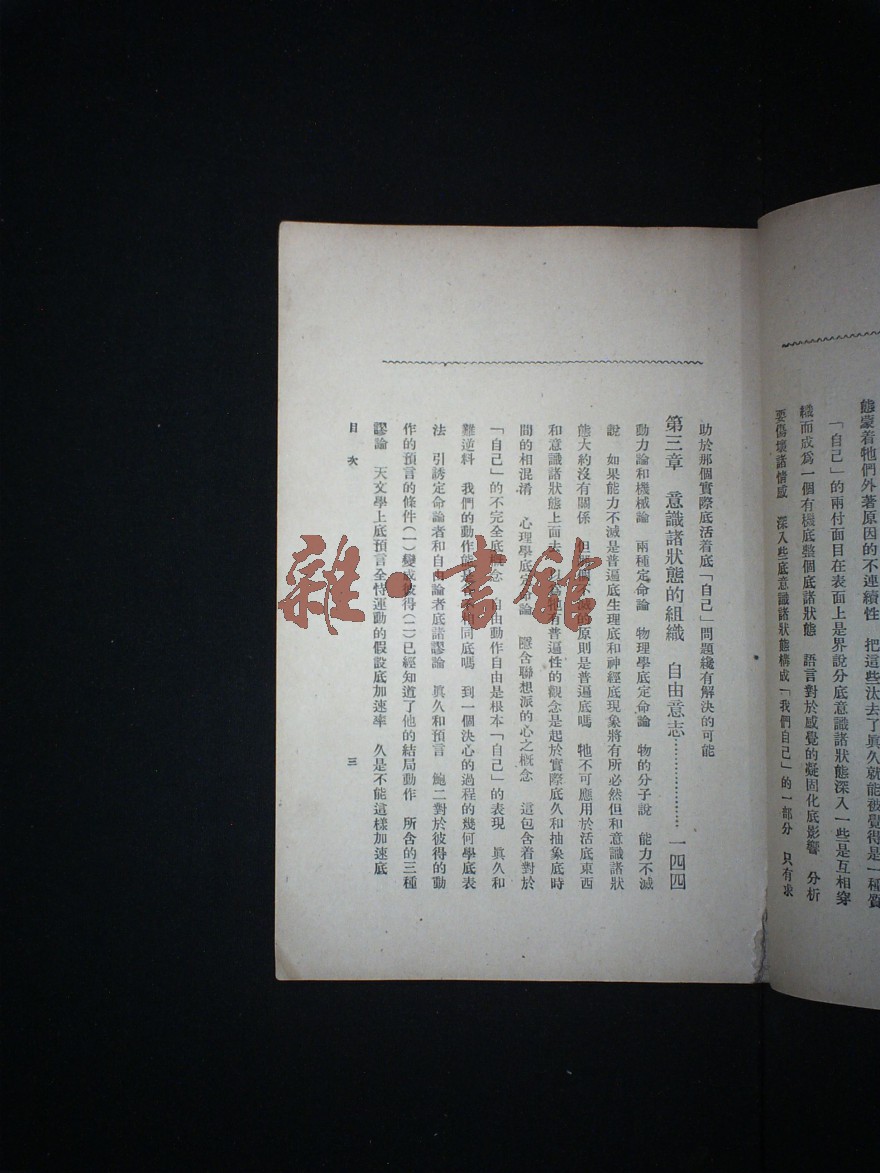 態蒙着牠們外著原因的不連續性　把這些汰去了眞久就能被覺得是一種質
「自己」的兩付面目在表面上是界說分底意識諸狀態深入一些是互相穿
織而成爲一個有機底整個底諸狀態　語言對於感覺的凝固化底影響　分析
要傷壞諸情感　深入些底意識諸狀態構成「我們自己」的一部分　只有求
助於那個實際底活着底「自己」問題纔有解決的可能
第三章　意識諸狀態的組織　自由意志………………一四四
動力論和機械論　兩種定命論　物理學底定命論　物的分子說　能力不滅
說　如果能力不滅是普遍底生理底和神經底現象將有所必然但和意識諸狀
態大約沒有關係　但不滅的原則是普遍底嗎　牠不可應用於活底東西
和意識諸狀態上面去　牠有普遍性的觀念是起於實際底久和抽象底時
間的相混淆　心理學底定命論　隱含聯想派的心之概念　這包含着對於
「自己」的不完全底概念　自由動作自由是根本「自己」的表現　眞久和
難逆料　我們的動作能不相同底嗎　到一個決心的過程的幾何學底表
法　引誘定命論者和自由論者底諸謬論　眞久和預言　鮑二對於彼得的動
作的預言的條件(一)變成彼得(二)已經知道了他的結局動作　所含的三種
謬論　天文學上底預言全恃運動的假設底加速率　久是不能這樣加速底
目次　三
雜·書館